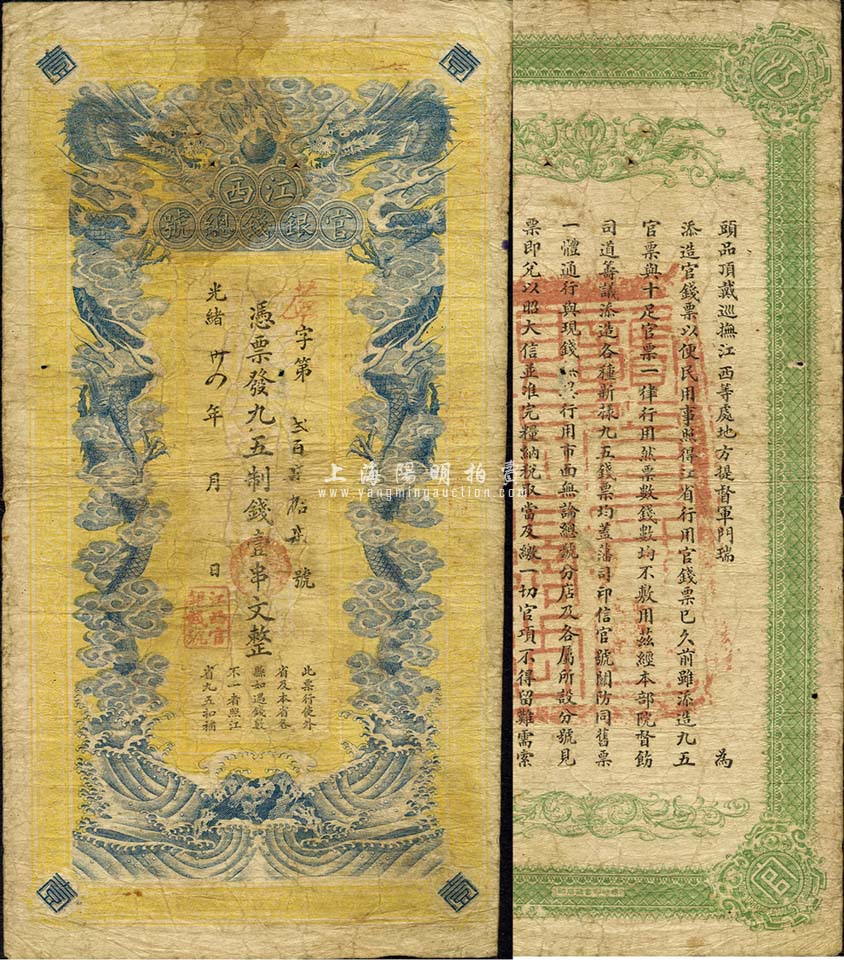 壹
壹
江西
官銀錢總號
字第 弍百 拾 號
憑票發九五制錢壹串文整
光緒 卅四 年 月 日
江西官銀錢號
此票行使外
省及本省各
縣如遇錢數
不一者照江
省九五扣補
壹
壹
頭品頂戴巡撫江西等處地方提督軍門瑞 為
添造官錢票以便民用事照得江省行用官錢票已久前雖添造九五
官票與十足官票一律行用然票數錢數均不敷用茲經本部院督飭
司道籌議添造各種新樣九五錢票均蓋藩司印信官號關防同舊票
一體通行與現錢 行用市面無論總號分店及各屬所設分號見
票即兌以昭大信並准完糧納稅取當及繳一切官項不得留難需索
官
上海陽明拍賣
www.yangmingauction.com